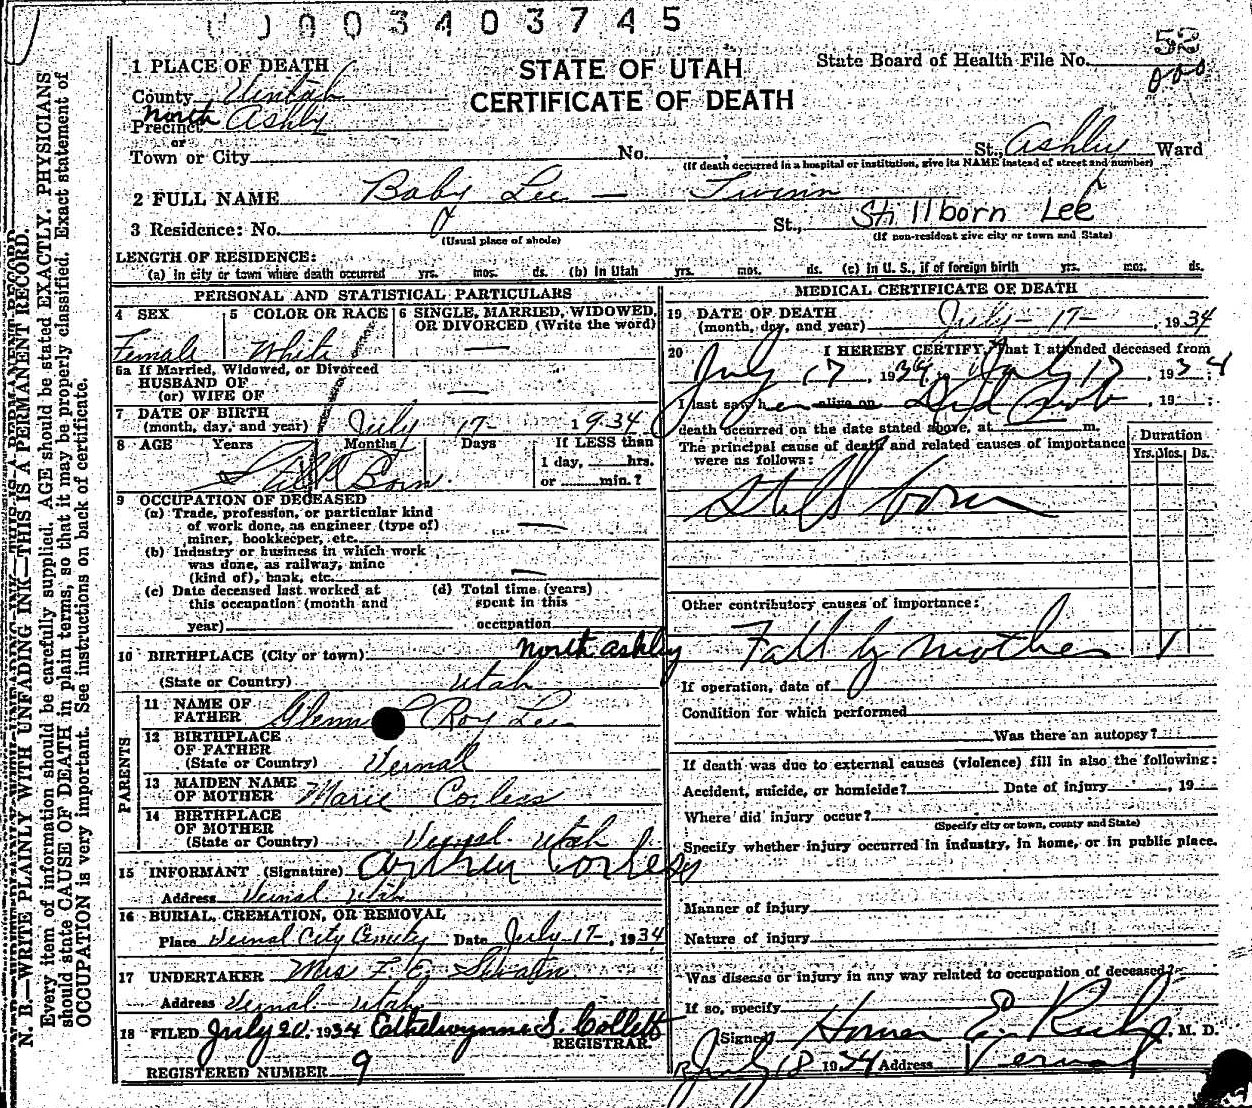 0003403745
52
1 PLACE OF DEATH
STATE OF UTAH
State Board of Health File No.
County Uintah
CERTIFICATE OF DEATH
North
Precinct Ashley
or
Town or City No. St., Ashley Ward
(If death occurred in a hospital or institution, give its NAME instead of street and number)
2 FULL NAME Baby Lee —
Stillborn Lee
3 Residence: No. St.,
(Usual place of abode) (If non-resident give city or town and State)
LENGTH OF RESIDENCE:
(a) In city or town where death occurred yrs. mos. ds. (b) In Utah yrs. mos. ds. (c) In U. S., if of foreign birth yrs. mos. ds.
PERSONAL AND STATISTICAL PARTICULARS
4 SEX 5 COLOR OR RACE 6 SINGLE, MARRIED, WIDOWED, OR DIVORCED (Write the word)
Female White —
6a If Married, Widowed, or Divorced
HUSBAND OF
(or) WIFE OF —
7 DATE OF BIRTH
(month, day, and year) July 17- 1934
8 AGE Years Months Days If LESS than
1 day, hrs.
or min.?
Still Born.
9 OCCUPATION OF DECEASED
(a) Trade, profession, or particular kind
of work done, as engineer (type of)
miner, bookkeeper, etc. —
(b) Industry or business in which work
was done, as railway, mine
(kind of), bank, etc. —
(c) Date deceased last worked at
this occupation (month and
year)
(d) Total time (years)
spent in this
occupation
10 BIRTHPLACE (City or town) North Ashley
(State or Country) Utah
PARENTS
11 NAME OF
FATHER Glenn Roy Lee
12 BIRTHPLACE
OF FATHER
(State or Country) Vernal
13 MAIDEN NAME
OF MOTHER Marie Corless
14 BIRTHPLACE
OF MOTHER
(State or Country) Vernal Utah
15 INFORMANT (Signature) Arthur Corless
Address Vernal Utah
16 BURIAL, CREMATION, OR REMOVAL
Place Vernal City Cemetery Date July-17-, 1934
17 UNDERTAKER Mrs F. E.
Address Vernal Utah
18 FILED July 20, 1934 Ethelwynne S. Collett
REGISTRAR.
REGISTERED NUMBER 9
MEDICAL CERTIFICATE OF DEATH
19 DATE OF DEATH
(month, day, and year) July - 17 -, 1934
20 I HEREBY CERTIFY, That I attended deceased from
July 17, 1934, to July 17, 1934
I last saw her alive on Did not, 19 ;
death occurred on the date stated above, at m.
The principal cause of death and related causes of importance
were as follows:
Duration
Yrs. Mos. Ds.
Still born
Other contributory causes of importance:
Fall by mother
If operation, date of
Condition for which performed
Was there an autopsy?
If death was due to external causes (violence) fill in also the following:
Accident, suicide, or homicide? Date of injury, 19
Where did injury occur?
(Specify city or town, county and State)
Specify whether injury occurred in industry, in home, or in public place.
Manner of injury
Nature of injury
Was disease or injury in any way related to occupation of deceased?
If so, specify
(Signed) Homer E. M. D.
July 18 1934 Address Vernal
N. B.—WRITE PLAINLY WITH UNFADING INK—THIS IS A PERMANENT RECORD.
Every item of information should be carefully supplied. AGE should be stated EXACTLY. PHYSICIANS
should state CAUSE OF DEATH in plain terms, so that it may be properly classified. Exact statement of
OCCUPATION is very important. See instructions on back of certificate.